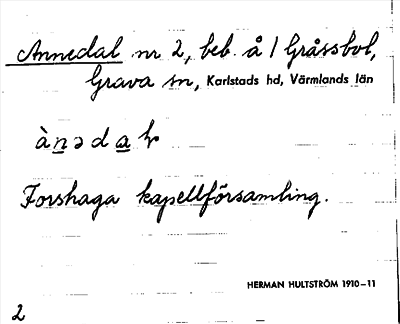 Annedal nr 2, beb. å 1 Gråssbol,
Grava sn, Karlstads hd, Värmlands län
ànədaɫ
Forshaga kapellförsamling.
HERMAN HULTSTRÖM 1910–11
2